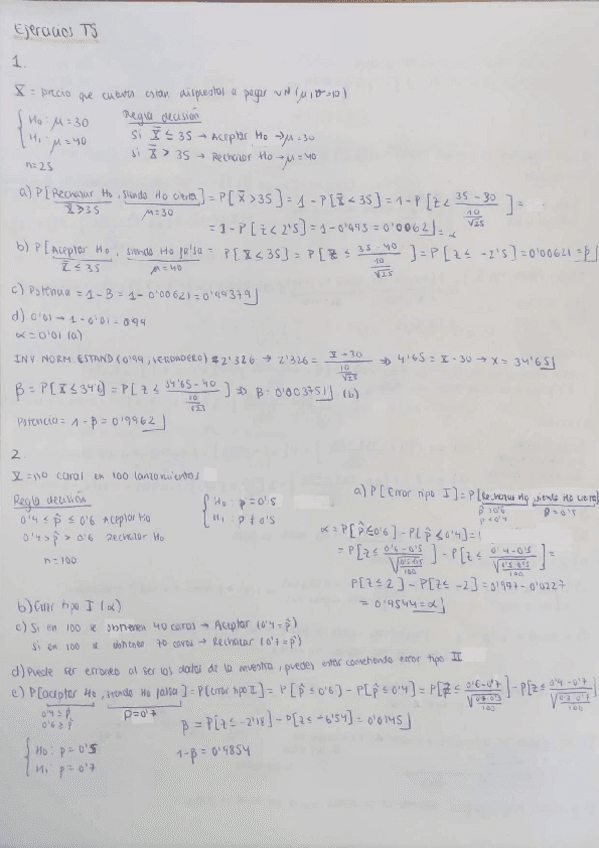 Ejercicios T5
1.
X = precio que cuanto están dispuestos a pagar ~N(μ, σ=10)
H₀: μ=30
H₁: μ=40
n=25
Regla decisión
Si X̄ ≤ 35 → Aceptar H₀ → μ=30
Si X̄ > 35 → Rechazar H₀ → μ=40
a) P[Rechazar H₀, siendo H₀ cierta] = P[X̄>35] = 1 - P[X̄≤35] = 1 - P[Z< (35-30)/(10/√25)] =
X̄>35 μ=30
= 1 - P[Z<2'5] = 1 - 0'993 = 0'0062 = α
b) P[Aceptar H₀, siendo H₀ falsa = P[X̄≤35] = P[Z ≤ (35-40)/(10/√25)] = P[Z ≤ -2'5] = 0'00621 = β
X̄ ≤ 35 μ=40
c) Potencia = 1-β = 1-0'00621 = 0'99379
d) 0'01 → 1-0'01 = 0'99
α = 0'01 (a)
INV NORM. ESTAND (0'99, VERDADERO) 2'326 → 2'326 = (X-30)/(10/√25) ⇒ 4'65 = X-30 → X = 34'65
β = P[X̄≤34'6] = P[Z ≤ (34'65-40)/(10/√25)] ⇒ β = 0'003751 (b)
Potencia = 1-β = 0'9962
2.
X = nº caras en 100 lanzamientos
Regla decisión
0'4 ≤ p̂ ≤ 0'6 Aceptar H₀
0'4 > p̂ > 0'6 Rechazar H₀
n=100
H₀: p=0'5
H₁: p≠0'5
a) P[Error tipo I] = P[Rechazar H₀, siendo H₀ cierta]
p̂>0'6 p=0'5
p̂<0'4
α = P[p̂≤0'6] - P[p̂≤0'4] =
= P[Z ≤ (0'6-0'5)/√(0'5·0'5/100)] - P[Z ≤ (0'4-0'5)/√(0'5·0'5/100)] =
P[Z≤2] - P[Z≤-2] = 0'977 - 0'0227
= 0'9544 = α
b) Error tipo I (α)
c) Si en 100 se obtienen 40 caras → Aceptar (0'4=p̂)
Si en 100 se obtienen 70 caras → Rechazar (0'7=p̂)
d) Puede ser erróneo al ser los datos de la muestra, puedes estar cometiendo error tipo II
e) P[aceptar H₀, siendo H₀ falsa] = P[Error tipo II] = P[p̂≤0'6] - P[p̂≤0'4] = P[Z ≤ (0'6-0'7)/√(0'7·0'3/100)] - P[Z ≤ (0'4-0'7)/√(0'7·0'3/100)]
0'4≥p̂ p=0'7
0'6≥p̂
β = P[Z≤-2'18] - P[Z≤-6'54] = 0'0145
H₀: p=0'5
H₁: p=0'7
1-β = 0'9854